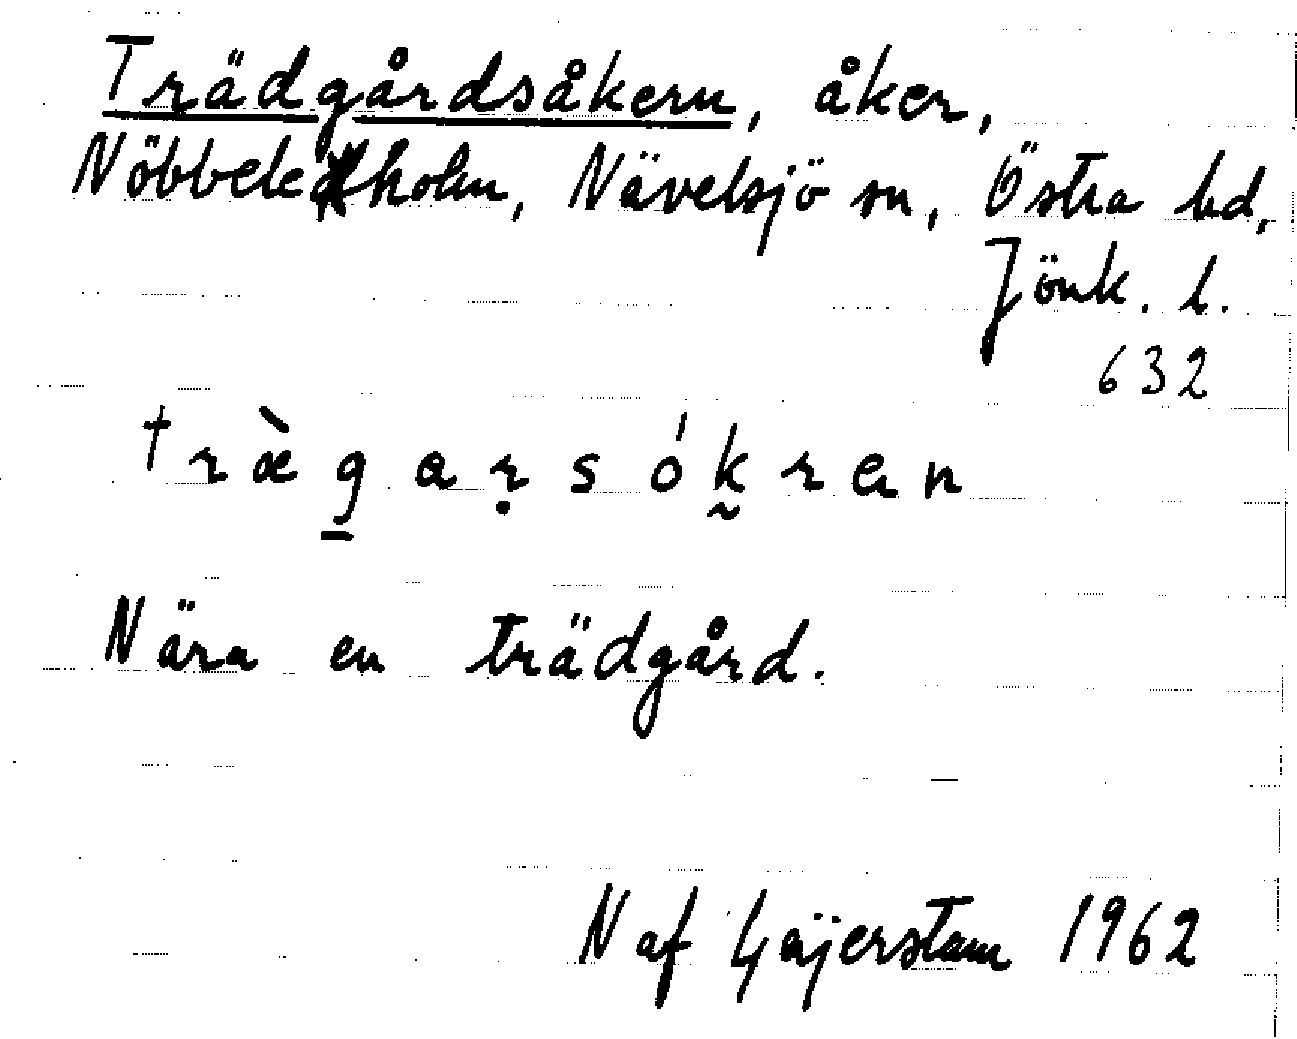 Trädgårdsåkern, åker,
Nöbbeleholm, Nävelsjö sn, Östra hd,
Jönk. l.
632
træ̀g̱aṛsók̰ran
Nära en trädgård.
N af Gäjerstam 1962